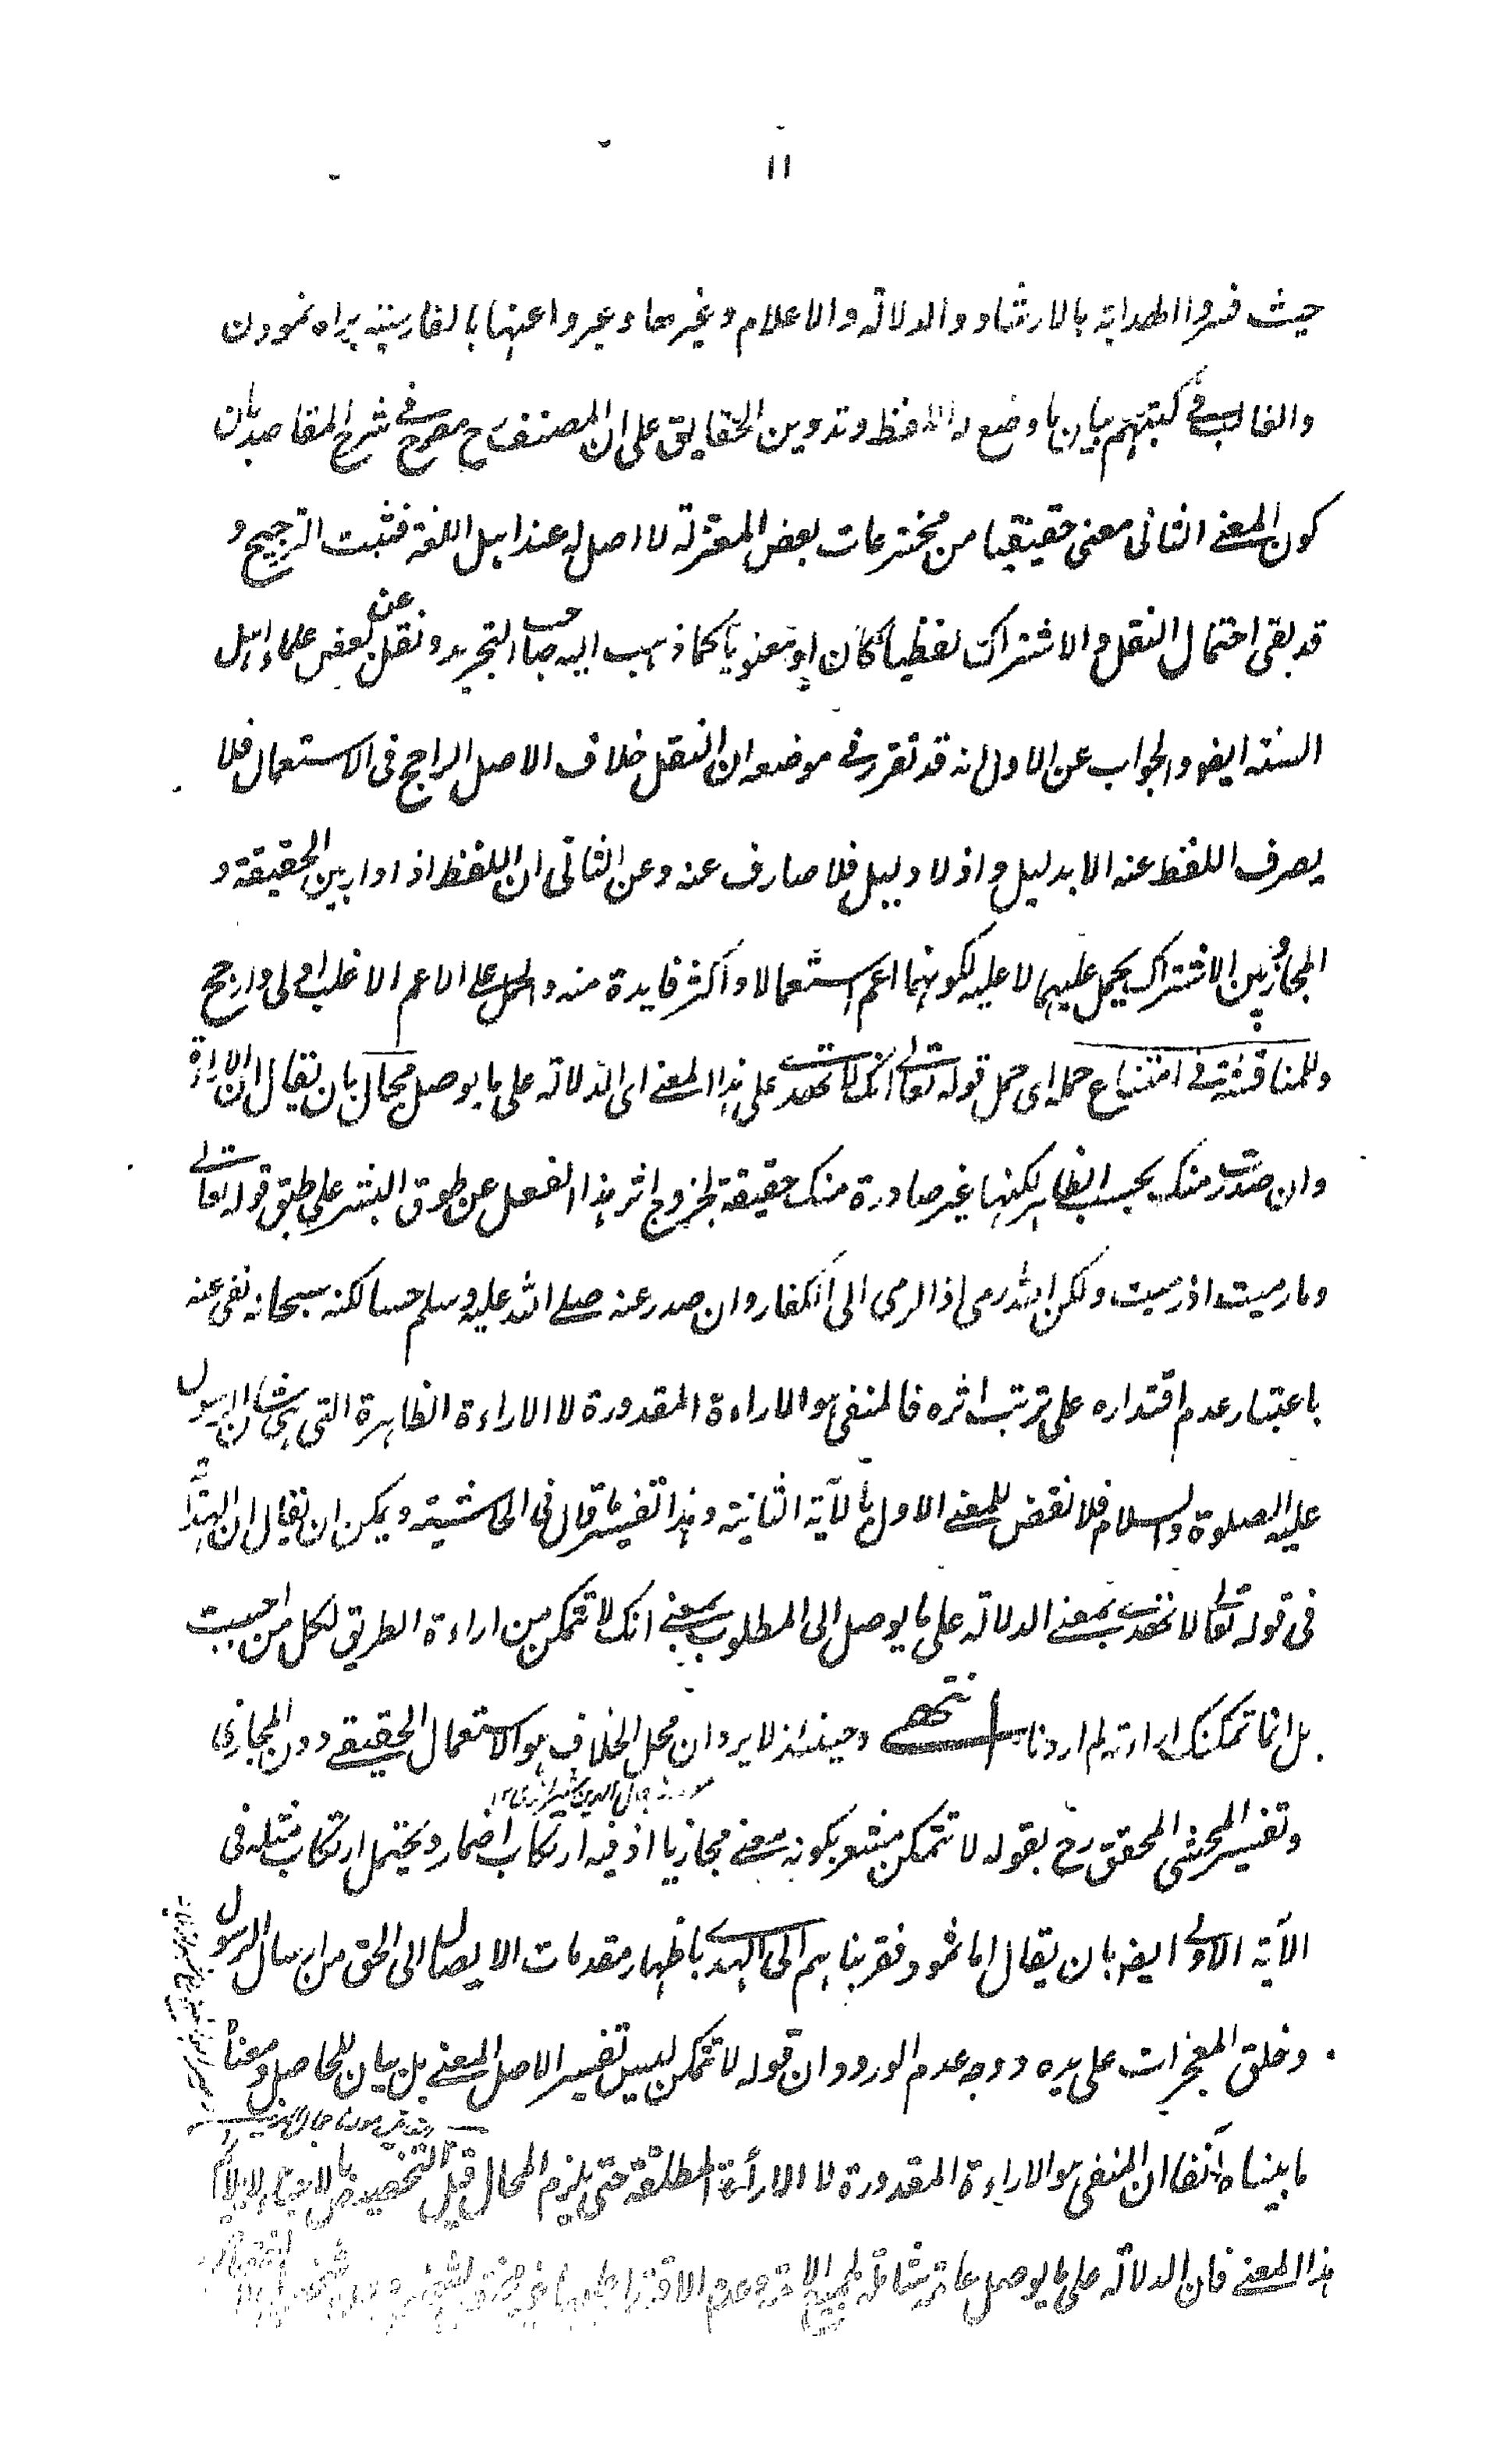 ١١
حيث فسروا الهداية بالارشاد والدلالة والاعلام وغيرها وعبروا عنها بالفارسية براه نمودن
والغالب فى كتبهم بيان ما وضع له اللفظ وتدوين الحقايق على ان المصنف رح مصرح فى شرح المقاصد بان
كون المعنى الثانى معنى حقيقيا من مخترعات بعض المعتزلة لا اصل له عند اهل اللغة فثبت الترجيح و
قد بقى احتمال النقل والاشتراك لفظيا كان او معنويا كما ذهب اليه صاحب التجريد ونقل عن بعض علماء اهل
السنة ايضا والجواب عن الاول انه قد تقرر فى موضعه ان النقل خلاف الاصل الراجح فى الاستعمال فلا
يصرف اللفظ عنه الا بدليل واذ لا دليل فلا صارف عنه وعن الثانى ان اللفظ اذا دار بين الحقيقة و
المجاز وبين الاشتراك يحمل عليهما لا عليه لكونهما اعم استعمالا واكثر فايدة منه والحمل على الاعم الاغلب اولى وارجح
وللمناقشة فى امتناع حمله اى حمل قوله تعالى انك لا تهدى على هذا المعنى اى الدلالة على ما يوصل مجال بان يقال ان الاراءة
وان صدرت منك بحسب الظاهر لكنها غير صادرة منك حقيقة لخروج اثر هذا الفعل عن طوق البشر على طبق قوله تعالى
وما رميت اذ رميت ولكن الله رمى اذ الرمى الى الكفار وان صدر عنه صلى الله عليه وسلم حسا لكنه سبحانه نفى عنه
باعتبار عدم اقتداره على ترتب اثره فالمنفى هو الاراءة المقدورة لا الاراءة الظاهرة التى هى شان الرسول
عليه الصلوة والسلام فلا نقض للمعنى الاول بالآية الثانية وهذا تفسير ما قال فى الحاشية ويمكن ان يقال ان الهداية
فى قوله تعالى لا تهدى بمعنى الدلالة على ما يوصل الى المطلوب بمعنى انك لا تتمكن من اراءة الطريق لكل من احببت
بل انما تمكنك اراءته لمن اردنا انتهى وحينئذ لا يرد ان محل الخلاف هو الاستعمال الحقيقى دون المجازى
وتفسير المحشى المحقق رح بقوله لا تتمكن مشعر بكونه معنى مجازيا اذ فيه ارتكاب اضمار ويحتمل ارتكاب مثله فى
الآية الاولى ايضا بان يقال اما ثمود فقربناهم الى الهدى باظهار مقدمات الايصال الى الحق من ارسال الرسول
وخلق المعجزات على يده ووجه عدم الورود ان قوله لا تتمكن ليس تفسير الاصل المعنى بل بيان للحاصل ومعناه
ما بيناه آنفا ان المنفى هو الاراءة المقدورة لا الاراءة المطلقة حتى يلزم المحال قيل التخصيص بالاحباء لا يلائم
هذا المعنى فان الدلالة على ما يوصل عامة شاملة لجميع الامة وعدم الاقتدار عليها غير مختص